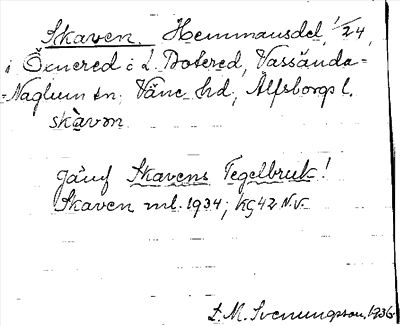 Skaven. Hemmansdel, 1/24,
i Öxnered i L. Botered, Vassända-
-Naglum sn, Väne hd, Älfsborgs l.
skàvan
Jämf Skavens Tegelbruk!
Skaven ml. 1934; kg 42 N.v.
L. M. Svenungsson, 1936